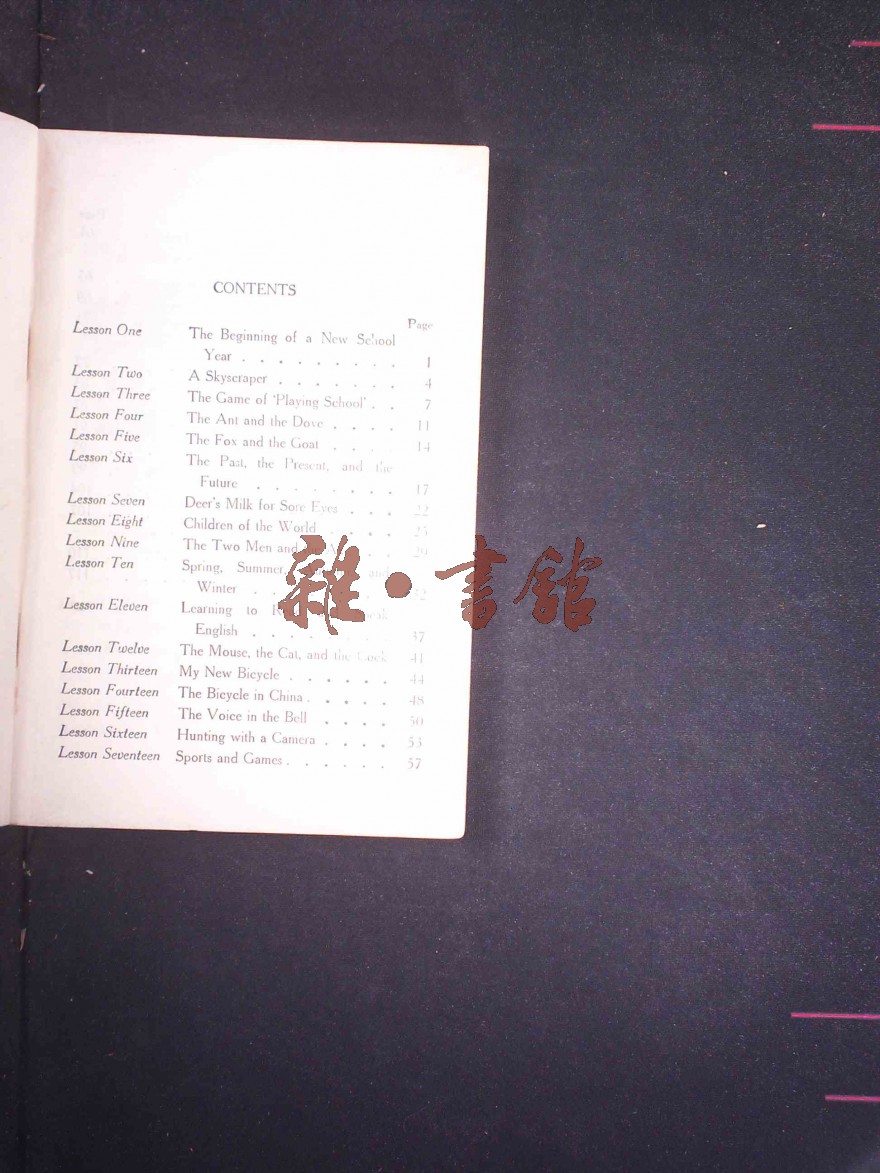 CONTENTS
Page
Lesson One The Beginning of a New School
Year . . . . . . . . 1
Lesson Two A Skyscraper . . . . . . . 4
Lesson Three The Game of 'Playing School' . . 7
Lesson Four The Ant and the Dove . . . . 11
Lesson Five The Fox and the Goat . . . . 14
Lesson Six The Past, the Present, and the
Future . . . . . . . 17
Lesson Seven Deer's Milk for Sore Eyes . . . 22
Lesson Eight Children of the World . . . . 25
Lesson Nine The Two Men and . . 29
Lesson Ten Spring, Summer, and
Winter . . .
Lesson Eleven Learning to
English . . . . . . . 37
Lesson Twelve The Mouse, the Cat, and the Cock 41
Lesson Thirteen My New Bicycle . . . . . . 44
Lesson Fourteen The Bicycle in China . . . . 48
Lesson Fifteen The Voice in the Bell . . . . 50
Lesson Sixteen Hunting with a Camera . . . . 53
Lesson Seventeen Sports and Games . . . . . . 57
雜·書館